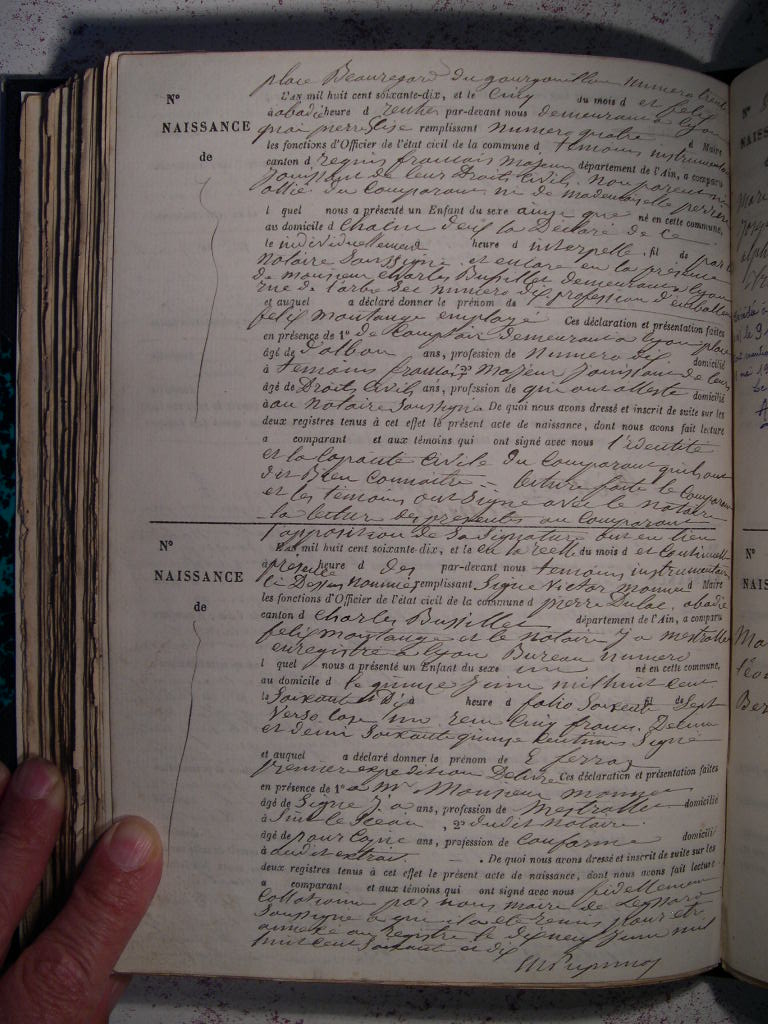 place Beauregard du gourguillon numero trente
N°
L'AN mil huit cent soixante-dix, et le cinq du mois d et felix
NAISSANCE
à abadie heure d rentier par-devant nous demeurant a lyon
quai pierre Scise remplissant numero quatre d Maire
de
les fonctions d'Officier de l'état civil de la commune d temoins instrumentaires
canton d requis francais majeurs département de l'Ain, a comparu
jouissant de leurs Droits Civils. non parents ni
allié. du Comparant ni de mademoiselle perrine
l quel nous a présenté un Enfant du sexe ainsi que né en cette commune,
au domicile d Chacun d'eux la Déclaré de ce
le individuellement heure d interpelle . fil de par le
Notaire Soussigné. et encore en la présence
de monsieur Charles Bussillet demeurant a lyon
rue de l'arbre Sec numero profession d'emballeur
et auquel a déclaré donner le prénom de
felix montange employé Ces déclaration et présentation faites
en présence de 1° de Comptoir demeurant a lyon place
âgé de d'albon ans, profession de numero dix domicilié
à temoins francais 2° majeurs jouissant de leurs
âgé de Droits Civils ans, profession de qui ont attesté domicilié
à au notaire Soussigné De quoi nous avons dressé et inscrit de suite sur les
deux registres tenus à cet effet le présent acte de naissance, dont nous avons fait lecture
a comparant et aux témoins qui ont signé avec nous l'identité
et la Capacité Civile du Comparant qu'ils ont
dit Bien Connaitre. - lecture faite le Comparant
et les témoins ont signé avec le notaire
la lecture des presentes au Comparant
l'apposition de sa signature ont eu lieu
N°
L'AN mil huit cent soixante-dix, et le en la réelle du mois d et continuelle
NAISSANCE
à présence heure d des par-devant nous temoins instrumentaires
Ci Dessus nommés remplissant Signé Victor monnet d Maire
de
les fonctions d'Officier de l'état civil de la commune d pierre Dulac, abadie
canton d Charles Bussillet département de l'Ain, a comparu
felix montange et le notaire J a mestrallet
enregistré a lyon Bureau numero
l quel nous a présenté un Enfant du sexe un né en cette commune,
au domicile d le quinze juin mil huit cent
le Soixante Dix heure d folio Soixante fil de Sept
Verso Case un reçu Cinq francs. Decime
et demi Soixante quinze Centimes Signé
et auquel a déclaré donner le prénom de E ferras
premier expedition Delivré Ces déclaration et présentation faites
en présence de 1° a Mr Monsieur monnet
âgé de Signé J a ans, profession de Mestrallet domicilié
à Suit le Sceau , 2° dudit notaire.
âgé de pour Copie ans, profession de Conforme domicilié
à dudit extrait - . De quoi nous avons dressé et inscrit de suite sur les
deux registres tenus à cet effet le présent acte de naissance, dont nous avons fait lecture
a comparant et aux témoins qui ont signé avec nous fidellement
Collationné par nous maire de
Soussigné a qui il a été remis pour etre
annexé au registre le dix neuf juin mil
huit cent Soixante et dix
N°
NAISS
N°
NAIS